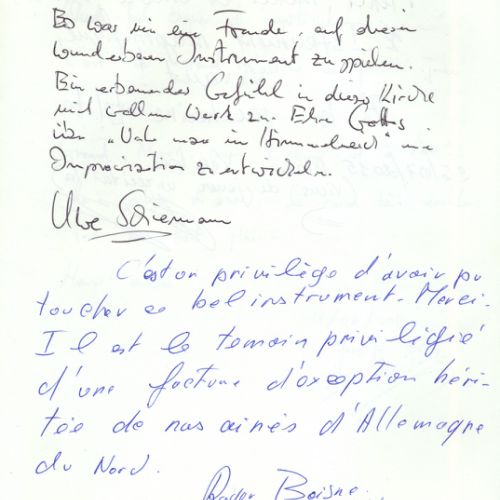 Es war mir eine Freude, auf diesem
wunderbaren Instrument zu spielen.
Ein erbauendes Gefühl in dieser Kirche
mit vollem Werk zur Ehre Gottes
über „Vater unser im Himmelreich" eine
Improvisation zu entwickeln.
Uwe
C'est un privilège d'avoir pu
toucher ce bel instrument. Merci.
Il est le temoin privilégié
d'une facture d'exception héri-
tée de nos ainés d'Allemagne
du Nord.